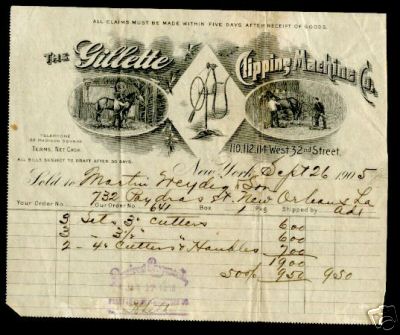 ALL CLAIMS MUST BE MADE WITHIN FIVE DAYS AFTER RECEIPT OF GOODS.
THE Gillette Clipping Machine Co.
110, 112, 114 West 32nd Street.
TELEPHONE
MADISON SQUARE
TERMS, NET CASH.
ALL BILLS SUBJECT TO DRAFT AFTER 30 DAYS.
New York, Sept 26 1905
Sold to Martin & Son
732 Poydras St. New Orleans La
Your Order No. Our Order No. 641 Box 1 Pkg Shipped by
3 Sets 3" Cutters 6.00
3 - 3½" " 6.00
2 - 4" Cutters & Handles 7.00
19.00
50% 9.50 9.50